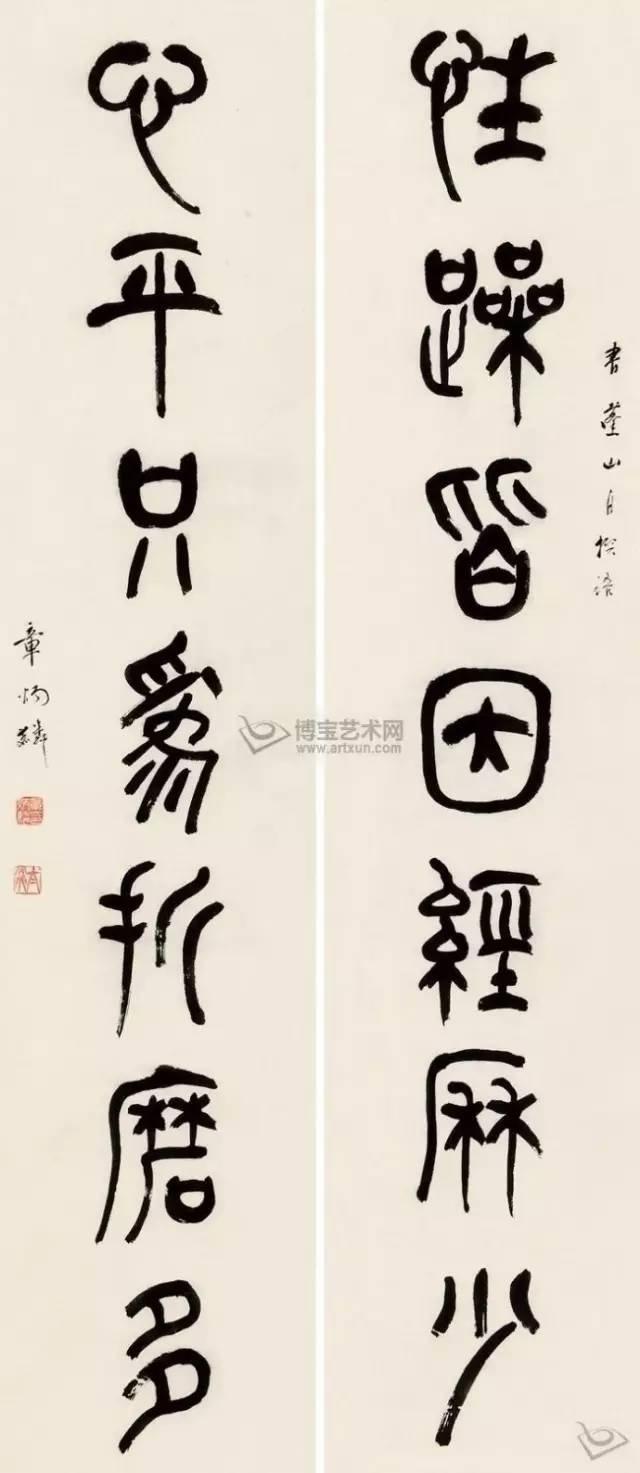 性躁皆因經厤少
書山自撰語
心平只爲折磨多
章炳麟
博宝艺术网
www.artxun.com